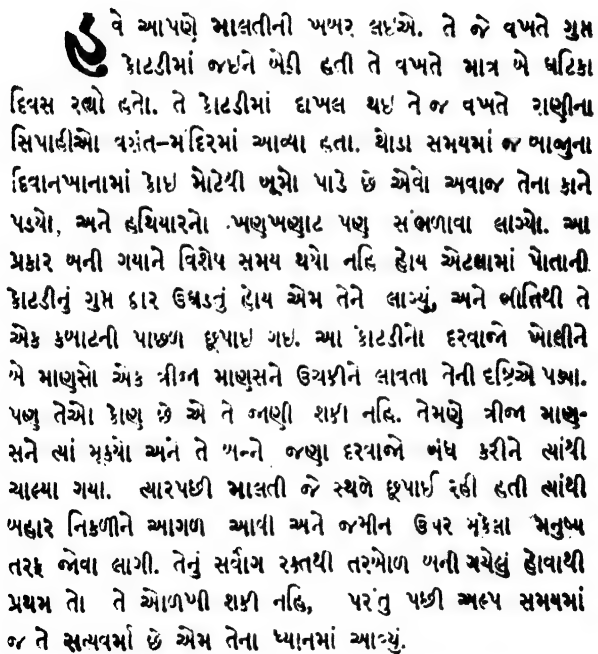 હવે આપણે માલતીની ખબર લઇએ. તે જે વખતે ગુપ્ત
કોટડીમાં જઇને બેઠી હતી તે વખતે માત્ર બે ઘટિકા
દિવસ રહ્યો હતો. તે કોટડીમાં દાખલ થઇ તે જ વખતે રાણીના
સિપાહીઓ વસંત-મંદિરમાં આવ્યા હતા. થોડા સમયમાં જ બાજુના
દિવાનખાનામાં કોઇ મોટેથી બૂમો પાડે છે એવો અવાજ તેના કાને
પડયો, અને હથિયારનો ખણખણાટ પણ સંભળાવા લાગ્યો. આ
પ્રકાર બની ગયાને વિશેષ સમય થયો નહિ હોય એટલામાં પોતાની
કોટડીનું ગુપ્ત દ્વાર ઉઘડતું હોય એમ તેને લાગ્યું, અને ભીતિથી તે
એક કબાટની પાછળ છૂપાઇ ગઇ. આ કોટડીનો દરવાજો ખોલીને
બે માણસો એક ત્રીજા માણસને ઉચકીને લાવતા તેની દષ્ટિએ પડ્યા.
પણ તેઓ કોણ છે એ તે જાણી શકી નહિ. તેમણે ત્રીજા માણ-
સને ત્યાં મૂકયો અને તે બન્ને જણા દરવાજો બંધ કરીને ત્યાંથી
ચાલ્યા ગયા. ત્યારપછી માલતી જે સ્થળે છૂપાઈ રહી હતી ત્યાંથી
બહાર નિકળીને આગળ આવી અને જમીન ઉપર મૂકેલા મનુષ્ય
તરફ જોવા લાગી. તેનું સર્વાંગ રક્તથી તરબોળ બની ગયેલું હોવાથી
પ્રથમ તો તે ઓળખી શકી નહિ, પરંતુ પછી અલ્પ સમયમાં
જ તે સત્યવર્મા છે એમ તેના ધ્યાનમાં આવ્યું.